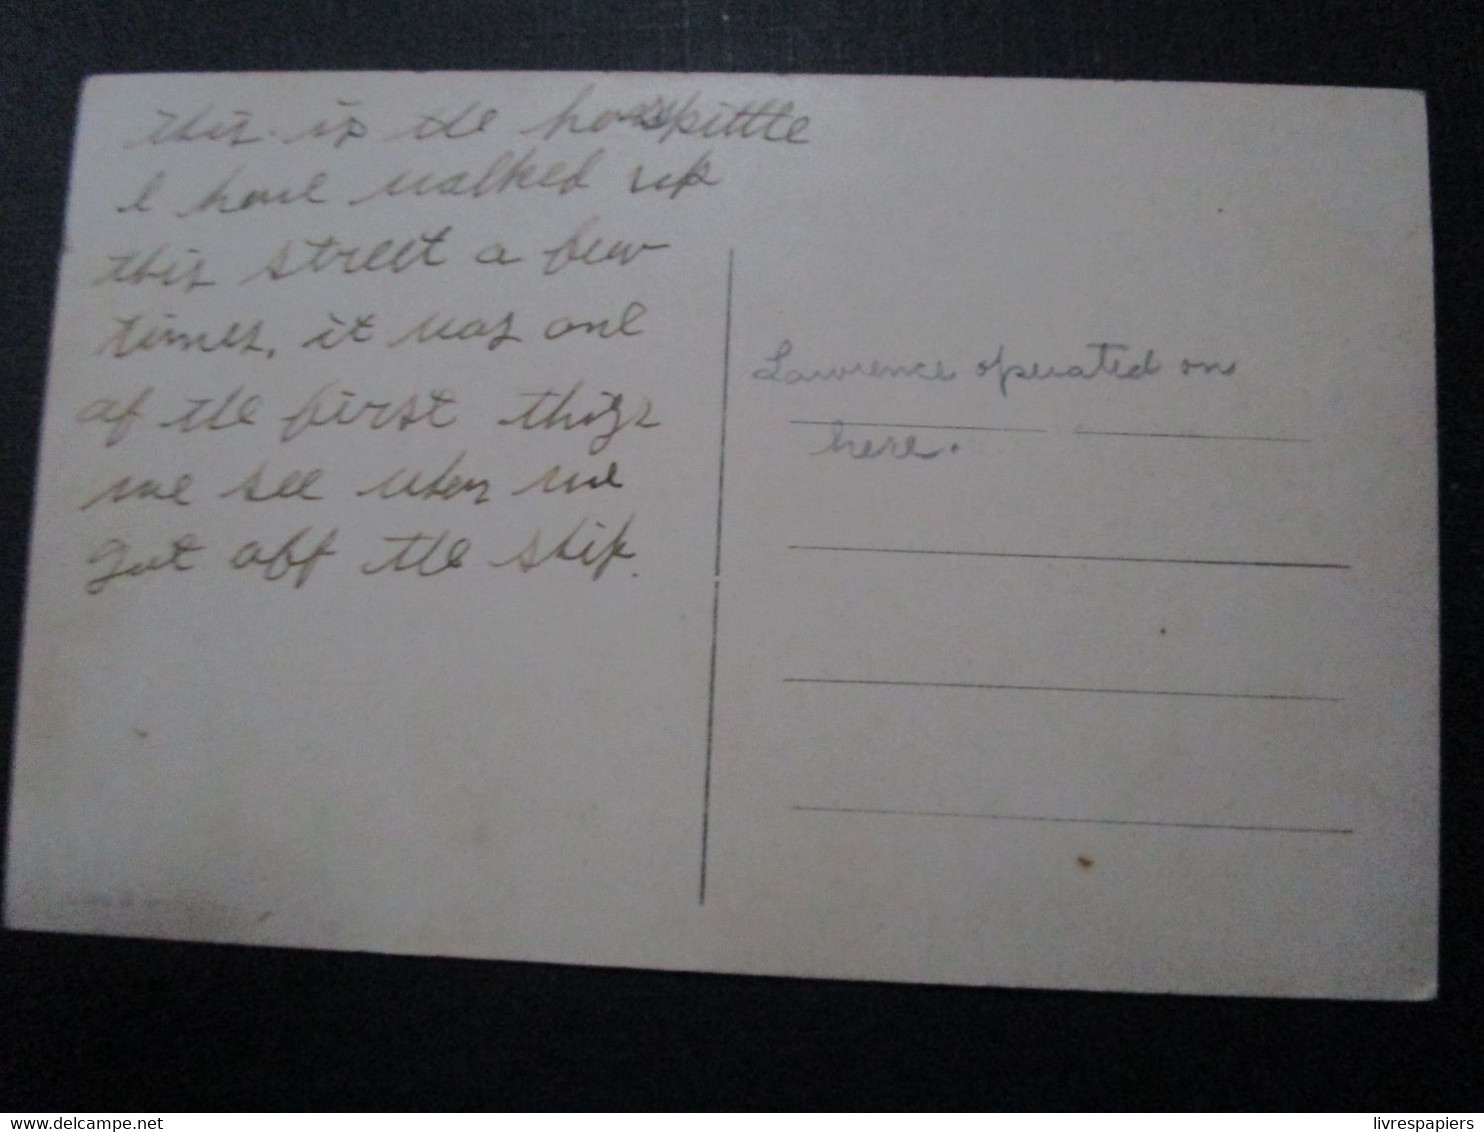 this is the hosspittle
I have walked up
this street a few
times, it was one
of the first things
we see when we
got off the ship.
Lawrence operated on
here.
delcampe.net
livrespapiers